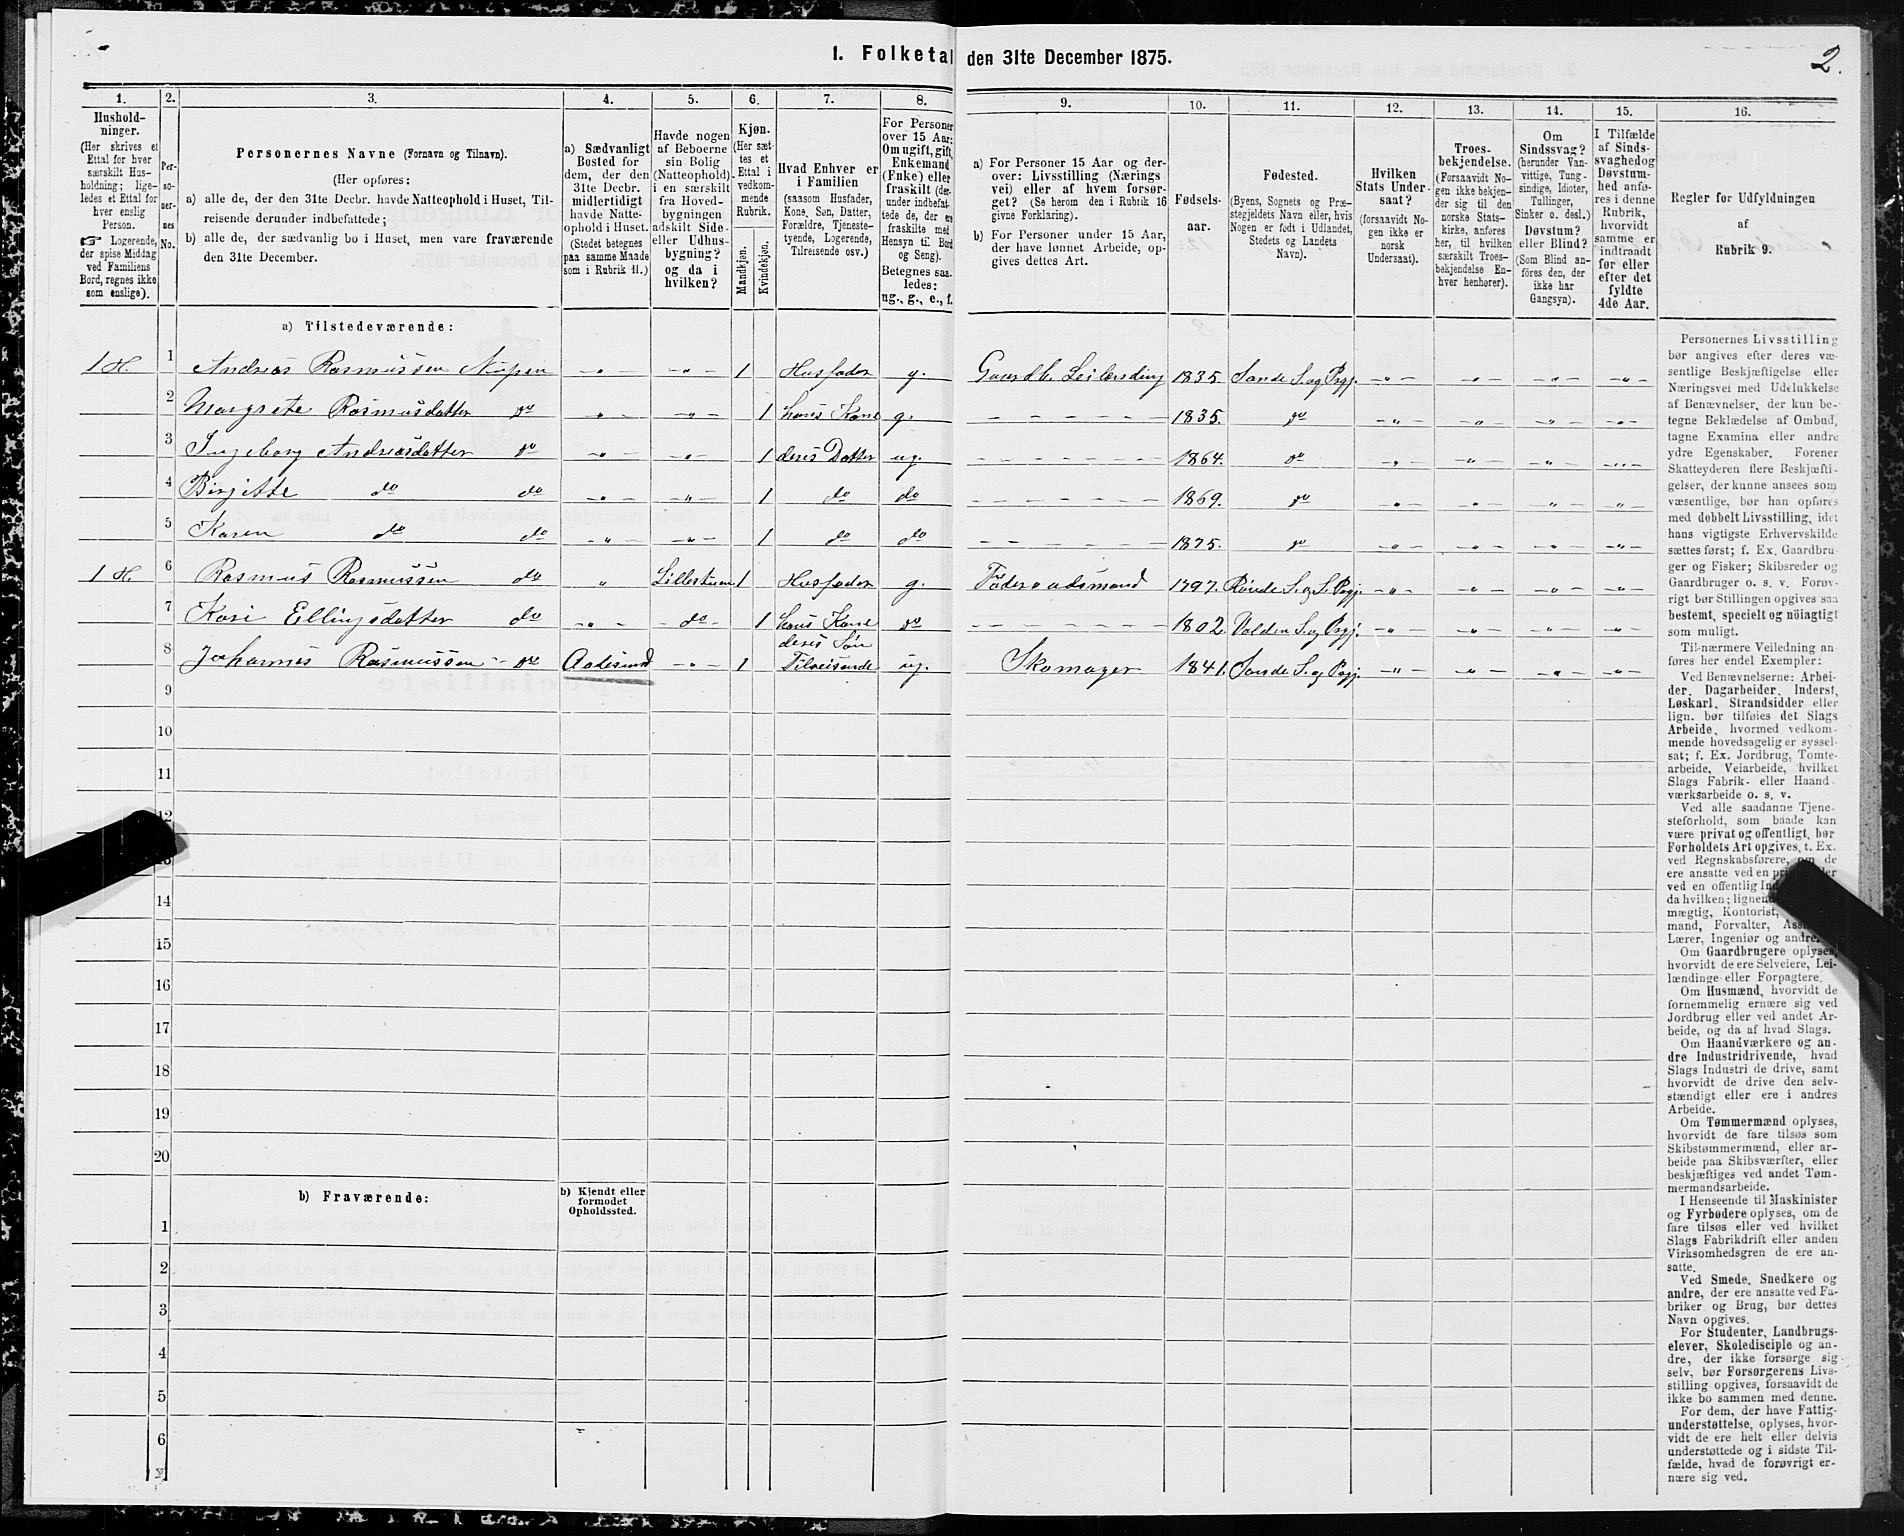 1. Folketal den 31te December 1875.
2.
1.
Hushold-
ninger.
(Her skrives et
Ettal for hver
særskilt Hus-
holdning; lige-
ledes et Ettal for
hver enslig
Person.
☞ Logerende,
der spise Middag
ved Familiens
Bord, regnes ikke
som enslige).
2.
Per-
so-
ner-
nes
No.
3.
Personernes Navne (Fornavn og Tilnavn).
(Her opføres:
a) alle de, der den 31te Decbr. havde Natteophold i Huset, Til-
reisende derunder indbefattede;
b) alle de, der sædvanlig bo i Huset, men vare fraværende
den 31te December.
4.
a) Sædvanligt
Bosted for
dem, der den
31te Decbr.
midlertidigt
havde Natte-
ophold i Huset.
(Stedet betegnes
paa samme Maade
som i Rubrik 11.)
5.
Havde nogen
af Beboerne
sin Bolig
(Natteophold)
i en særskilt
fra Hoved-
bygningen
adskilt Side-
eller Udhus-
bygning?
og da i
hvilken?
6.
Kjøn.
(Her sæt-
tes et
Ettal i
vedkom-
mende
Rubrik.
Mandkjøn.
Kvindekjøn.
7.
Hvad Enhver er
i Familien
(saasom Husfader,
Kone, Søn, Datter,
Forældre, Tjeneste-
tyende, Logerende,
Tilreisende osv.)
8.
For Personer
over 15 Aar:
Om ugift, gift,
Enkemand
(Enke) eller
fraskilt (der-
under indbefat-
tede de, der ere
fraskilte med
Hensyn til Bord
og Seng).
Betegnes saa-
ledes:
ug., g., e., f.
9.
a) For Personer 15 Aar og der-
over: Livsstilling (Nærings
vei) eller af hvem forsør-
get? (Se herom den i Rubrik 16
givne Forklaring).
b) For Personer under 15 Aar,
der have lønnet Arbeide, op-
gives dettes Art.
10.
Fødsels-
aar.
11.
Fødested.
(Byens, Sognets og Præ-
stegjeldets Navn eller, hvis
Nogen er født i Udlandet,
Stedets og Landets
Navn).
12.
Hvilken
Stats Under-
saat?
(forsaavidt No-
gen ikke er
norsk
Undersaat).
13.
Troes-
bekjendelse.
(Forsaavidt No-
gen ikke bekjen-
der sig til den
norske Stats-
kirke, anføres
her, til hvilken
særskilt Troes-
bekjendelse En-
hver henhører).
14.
Om
Sindssvag?
(herunder Van-
vittige, Tung-
sindige, Idioter,
Tullinger,
Sinker o. desl.)
Døvstum?
eller Blind?
(Som Blind an-
føres den, der
ikke har
Gangsyn).
15.
I Tilfælde
af Sinds-
svaghed og
Døvstum-
hed anfø-
res i denne
Rubrik,
hvorvidt
samme er
indtraadt
før eller
efter det
fyldte
4de Aar.
16.
Regler for Udfyldningen
af
Rubrik 9.
a) Tilstedeværende:
1 H. 1 Andreas Rasmussen Nupen - " - - " - 1 Husfader g. Gaardbr. Leilænding 1835. Sande S. og Prgj. - " - - " - - " - - " -
2 Margrete Rasmusdatter do - " - - " - 1 hans Kone g. - - - - - - 1835. do - " - - " - - " - - " -
3 Ingeborg Andreasdatter do - " - - " - 1 deres Datter ug. - - - - - - 1864. do - " - - " - - " - - " -
4 Birgitte do do - " - - " - 1 do do - - - - - - 1869. do - " - - " - - " - - " -
5 Karen do do - " - - " - 1 do do - - - - - - 1875. do - " - - " - - " - - " -
1 H. 6 Rasmus Rasmussen do " Lillestuen 1 Husfader g. Føderaadsmand 1797. Røvde S. og S. Prgj. - " - - " - - " - - " -
7 Kari Ellingsdatter do - " - do 1 hans Kone do - - - - - - 1802. Volden S. og Prgj. - " - - " - - " - - " -
deres Søn
8 Johannes Rasmussen do Aalesund - " - 1 Tilreisende ug. Skomager 1841. Sande S. og Prgj. - " - - " - - " - - " -
9
10
11
12
13
14
15
16
17
18
19
20
b) Fraværende:
b) Kjendt eller
formodet
Opholdssted.
1
2
3
4
5
6
Personernes Livsstilling
bør angives efter deres væ-
sentlige Beskjæftigelse eller
Næringsvei med Udelukkelse
af Benævnelser, der kun be-
tegne Beklædelse af Ombud,
tagne Examina eller andre
ydre Egenskaber. Forener
Skatteyderen flere Beskjæfti-
gelser, der kunne ansees som
væsentlige, bør han opføres
med dobbelt Livsstilling, idet
hans vigtigste Erhvervskilde
sættes først; f. Ex. Gaardbru-
ger og Fisker; Skibsreder og
Gaardbruger o. s. v. Forøv-
rigt bør Stillingen opgives saa
bestemt, specielt og nöiagtigt
som muligt.
Til nærmere Veiledning an-
føres her endel Exempler:
Ved Benævnelserne: Arbei-
der, Dagarbeider, Inderst,
Løskarl, Strandsidder eller
lign. bør tilføies det Slags
Arbeide, hvormed vedkom-
mende hovedsagelig er syssel-
sat; f. Ex. Jordbrug, Tomte-
arbeide, Veiarbeide, hvilket
Slags Fabrik- eller Haand-
værksarbeide o. s. v.
Ved alle saadanne Tjene-
steforhold, som baade kan
være privat og offentligt, bør
Forholdets Art opgives, t. Ex.
ved Regnskabsførere, om de
ere ansatte ved en
ved en offentlig
da hvilken;
mægtig, Kontorist,
mand, Forvalter,
Lærer, Ingeniør og andre.
Om Gaardbrugere oplyses,
hvorvidt de ere Selveiere, Lei-
lændinge eller Forpagtere.
Om Husmænd, hvorvidt de
fornemmelig ernære sig ved
Jordbrug eller ved andet Ar-
beide, og da af hvad Slags.
Om Haandværkere og an-
dre Industridrivende, hvad
Slags Industri de drive, samt
hvorvidt de drive den selv-
stændigt eller ere i andres
Arbeide.
Om Tømmermænd oplyses,
hvorvidt de fare tilsøs som
Skibstømmermænd, eller ar-
beide paa Skibsværfter, eller
beskjæftiges ved andet Tøm-
mermandsarbeide.
I Henseende til Maskinister
og Fyrbødere oplyses, om de
fare tilsøs eller ved hvilket
Slags Fabrikdrift eller anden
Virksomhedsgren de ere an-
satte.
Ved Smede, Snedkere og
andre, der ere ansatte ved Fa-
briker og Brug, bør dettes
Navn opgives.
For Studenter, Landbrugs-
elever, Skoledisciple og an-
dre, der ikke forsørge sig
selv, bør Forsørgerens Livs-
stilling opgives, forsaavidt de
ikke bo sammen med denne.
For dem, der have Fattig-
understøttelse, oplyses, hvor-
vidt de ere helt eller delvis
understøttede og i sidste Til-
fælde, hvad de forøvrigt er-
nære sig ved.